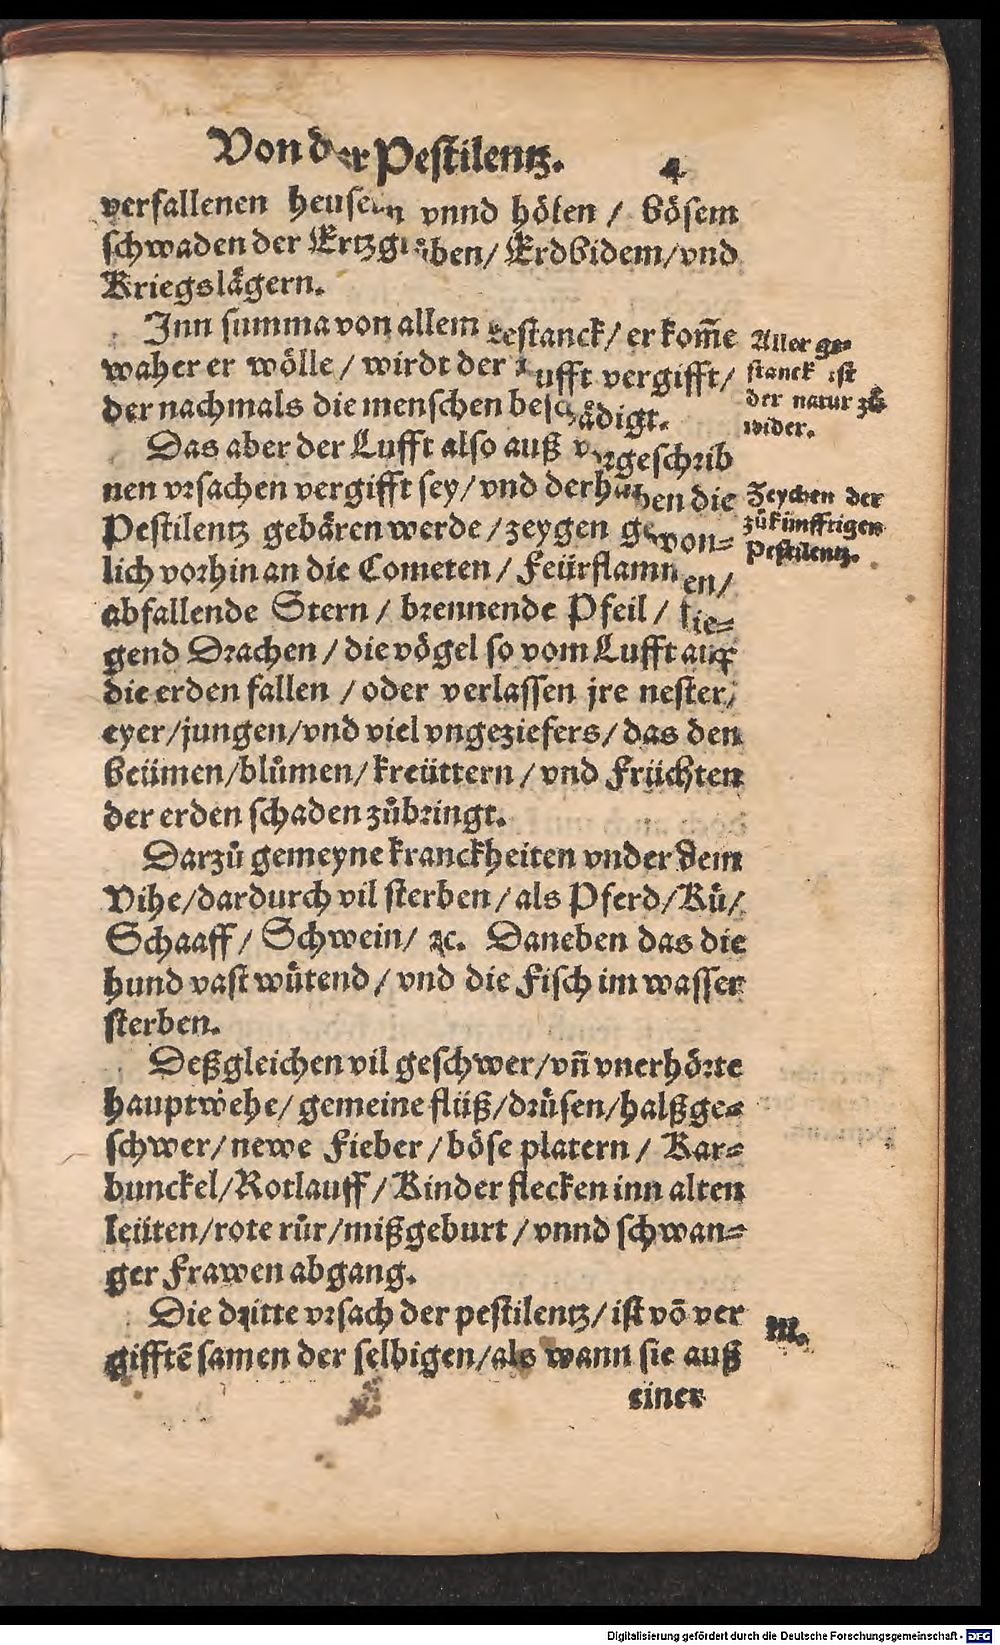 Von der Pestilentz. 4
verfallenen heusern vnnd hölen / bösem
schwaden der Ertzgrůben / Erdbidem / vnd
Kriegslägern.
Inn summa von allem gestanck / er kom̃e
waher er wölle / wirdt der Lufft vergifft /
der nachmals die menschen beschädigt.
Aller ge=
stanck ist
der natur zů
wider.
Das aber der Lufft also auß vorgeschrib
nen vrsachen vergifft sey / vnd derhalben die
Pestilentz gebären werde / zeygen gewon=
lich vorhin an die Cometen / Feürflammen /
abfallende Stern / brennende Pfeil / flie=
gend Drachen / die vögel so vom Lufft auff
die erden fallen / oder verlassen jre nester /
eyer / jungen / vnd viel vngeziefers / das den
beümen / blůmen / kreüttern / vnd Früchten
der erden schaden zůbringt.
Zeychen der
zůkünfftigen
Pestilentz.
Darzů gemeyne kranckheiten vnder dem
Vihe / dardurch vil sterben / als Pferd / Kü /
Schaaff / Schwein / ꝛc. Daneben das die
hund vast wütend / vnd die Fisch im wasser
sterben.
Deßgleichen vil geschwer / vñ vnerhörte
hauptwehe / gemeine flüß / drüsen / halßge=
schwer / newe Fieber / böse platern / Kar=
bunckel / Rotlauff / Kinder flecken inn alten
leüten / rote růr / mißgeburt / vnnd schwan=
ger Frawen abgang.
Die dritte vrsach der pestilentz / ist võ ver
gifftẽ samen der selbigen / als wann sie auß
III.
einer
Digitalisierung gefördert durch die Deutsche Forschungsgemeinschaft - DFG